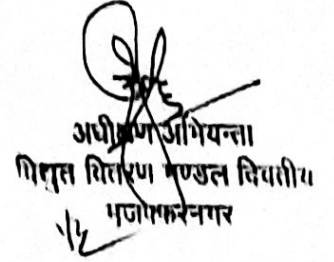 अधीक्षण अभियन्ता
विद्युत वितरण मण्डल द्वितीय
मुजफ्फरनगर